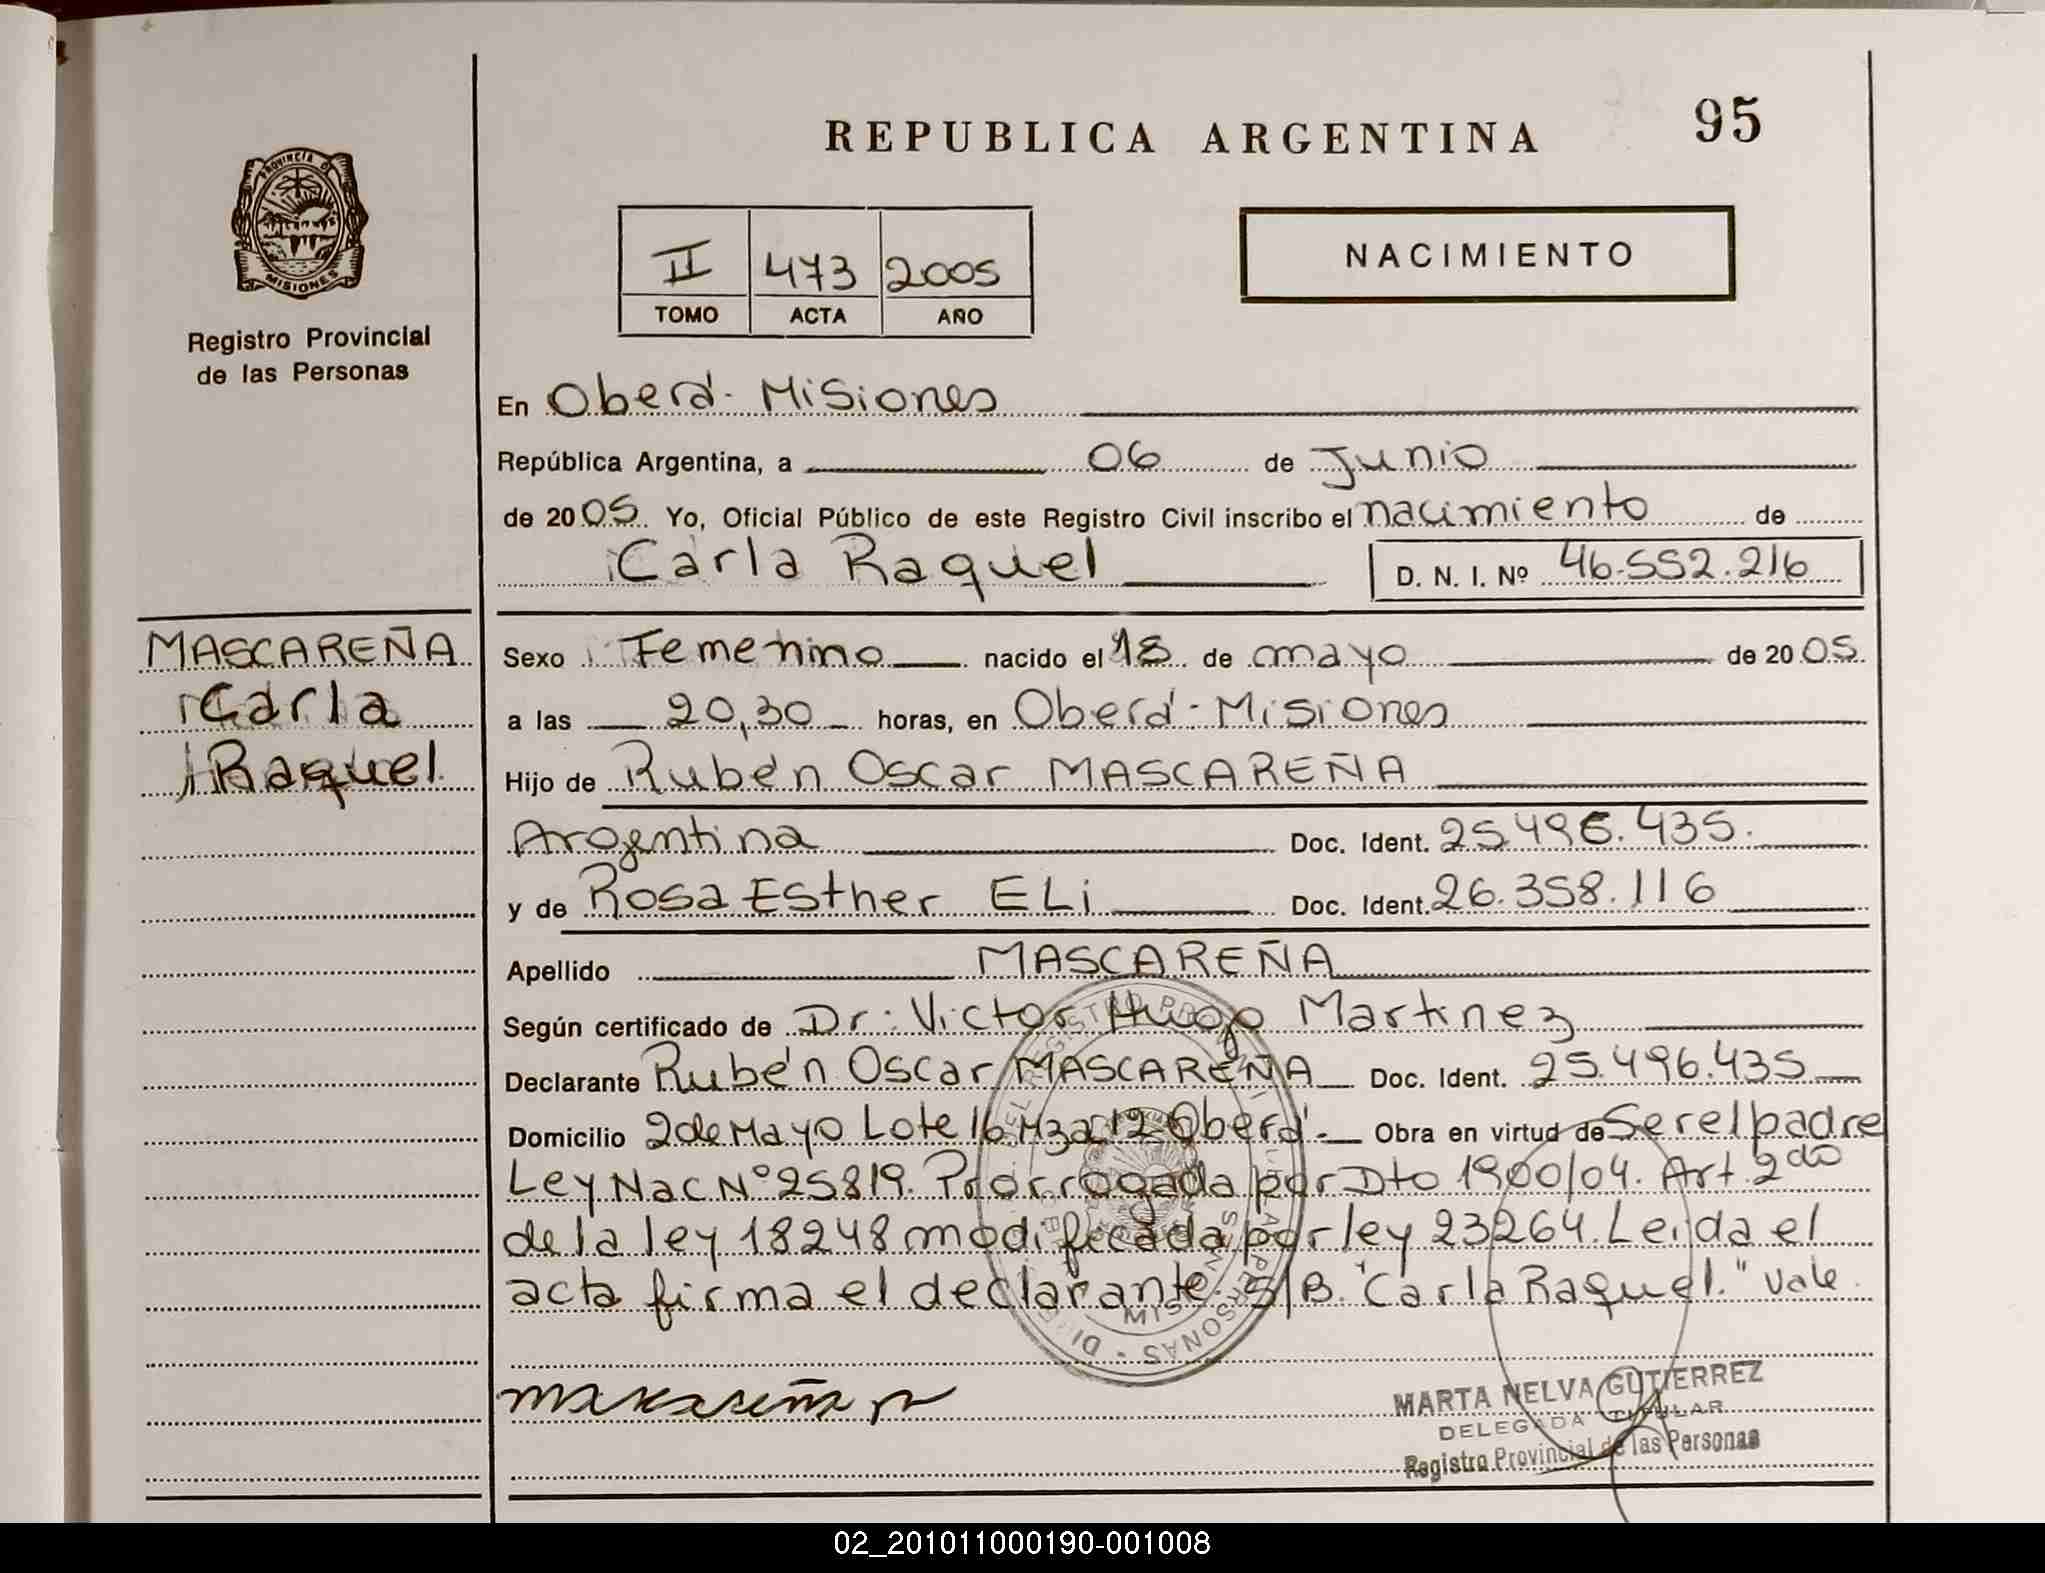 REPUBLICA ARGENTINA
95
PROVINCIA DE
MISIONES
Registro Provincial
de las Personas
II 473 2005
TOMO ACTA AÑO
NACIMIENTO
En Oberá - Misiones
República Argentina, a 06 de Junio
de 2005 Yo, Oficial Público de este Registro Civil inscribo el nacimiento de
Carla Raquel D. N. I. Nº 46.552.216
MASCAREÑA
Carla
Raquel
Sexo Femenino nacido el 18 de mayo de 2005
a las 20,30 horas, en Oberá - Misiones
Hijo de Rubén Oscar MASCAREÑA
Argentina Doc. Ident. 25.496.435.
y de Rosa Esther ELi Doc. Ident. 26.358.116
Apellido MASCAREÑA
Según certificado de Dr. Victor Hugo Martinez
Declarante Rubén Oscar MASCAREÑA Doc. Ident. 25.496.435
Domicilio 2 de Mayo Lote 16 Mza 12 Oberá - Obra en virtud de Ser el padre
Ley Nac Nº 25819. Prorrogada por Dto 1900/04. Art. 2do
de la ley 18248 modificada por ley 23264. Leida el
acta firma el declarante. S/B. "Carla Raquel." Vale.
MARTA NELVA GUTIERREZ
DELEGADA TITULAR
Registro Provincial de las Personas
02_201011000190-001008